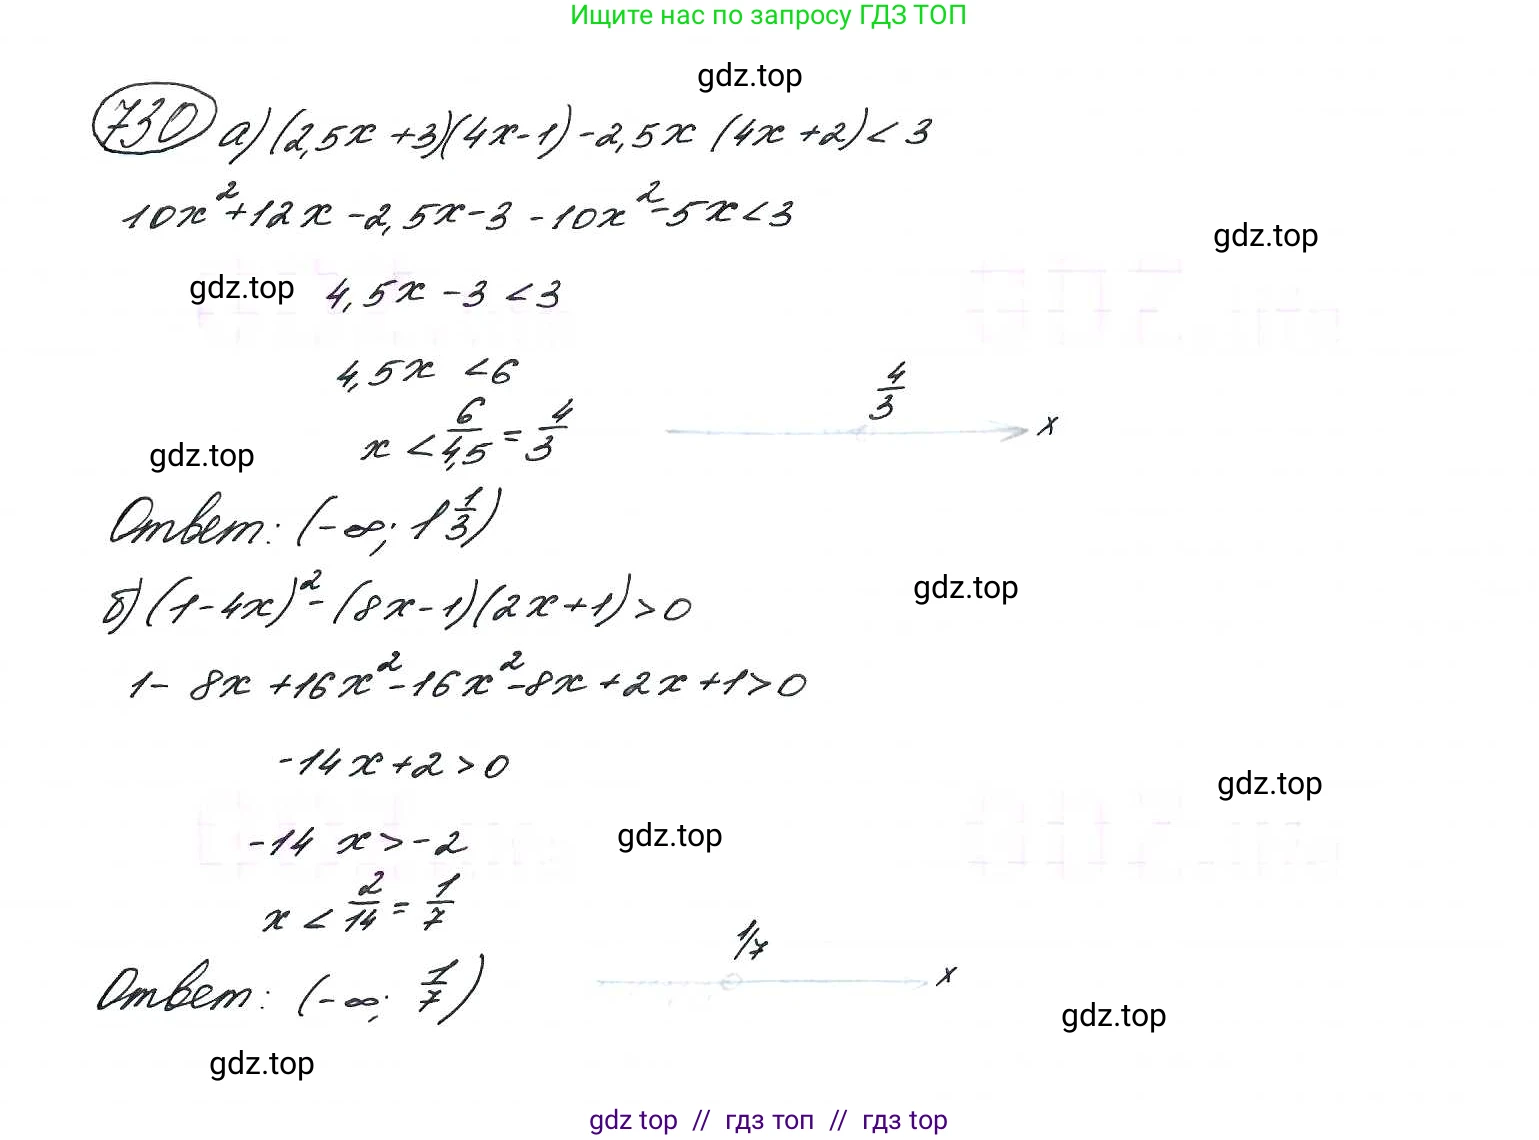 Ищите нас по запросу ГДЗ ТОП
gdz.top
730 а) (2,5x + 3)(4x - 1) - 2,5x (4x + 2) < 3
10x² + 12x - 2,5x - 3 - 10x² - 5x < 3
gdz.top
gdz.top 4,5x - 3 < 3
4,5x < 6
4/3
x < 6/4,5 = 4/3
x
gdz.top
Ответ: (-∞; 1 1/3)
б) (1 - 4x)² - (8x - 1)(2x + 1) > 0
gdz.top
1 - 8x + 16x² - 16x² - 8x + 2x + 1 > 0
-14x + 2 > 0
gdz.top
-14 x > -2
gdz.top
x < 2/14 = 1/7
1/7
x
Ответ: (-∞; 1/7)
gdz.top
gdz.top
gdz top // гдз топ // гдз top